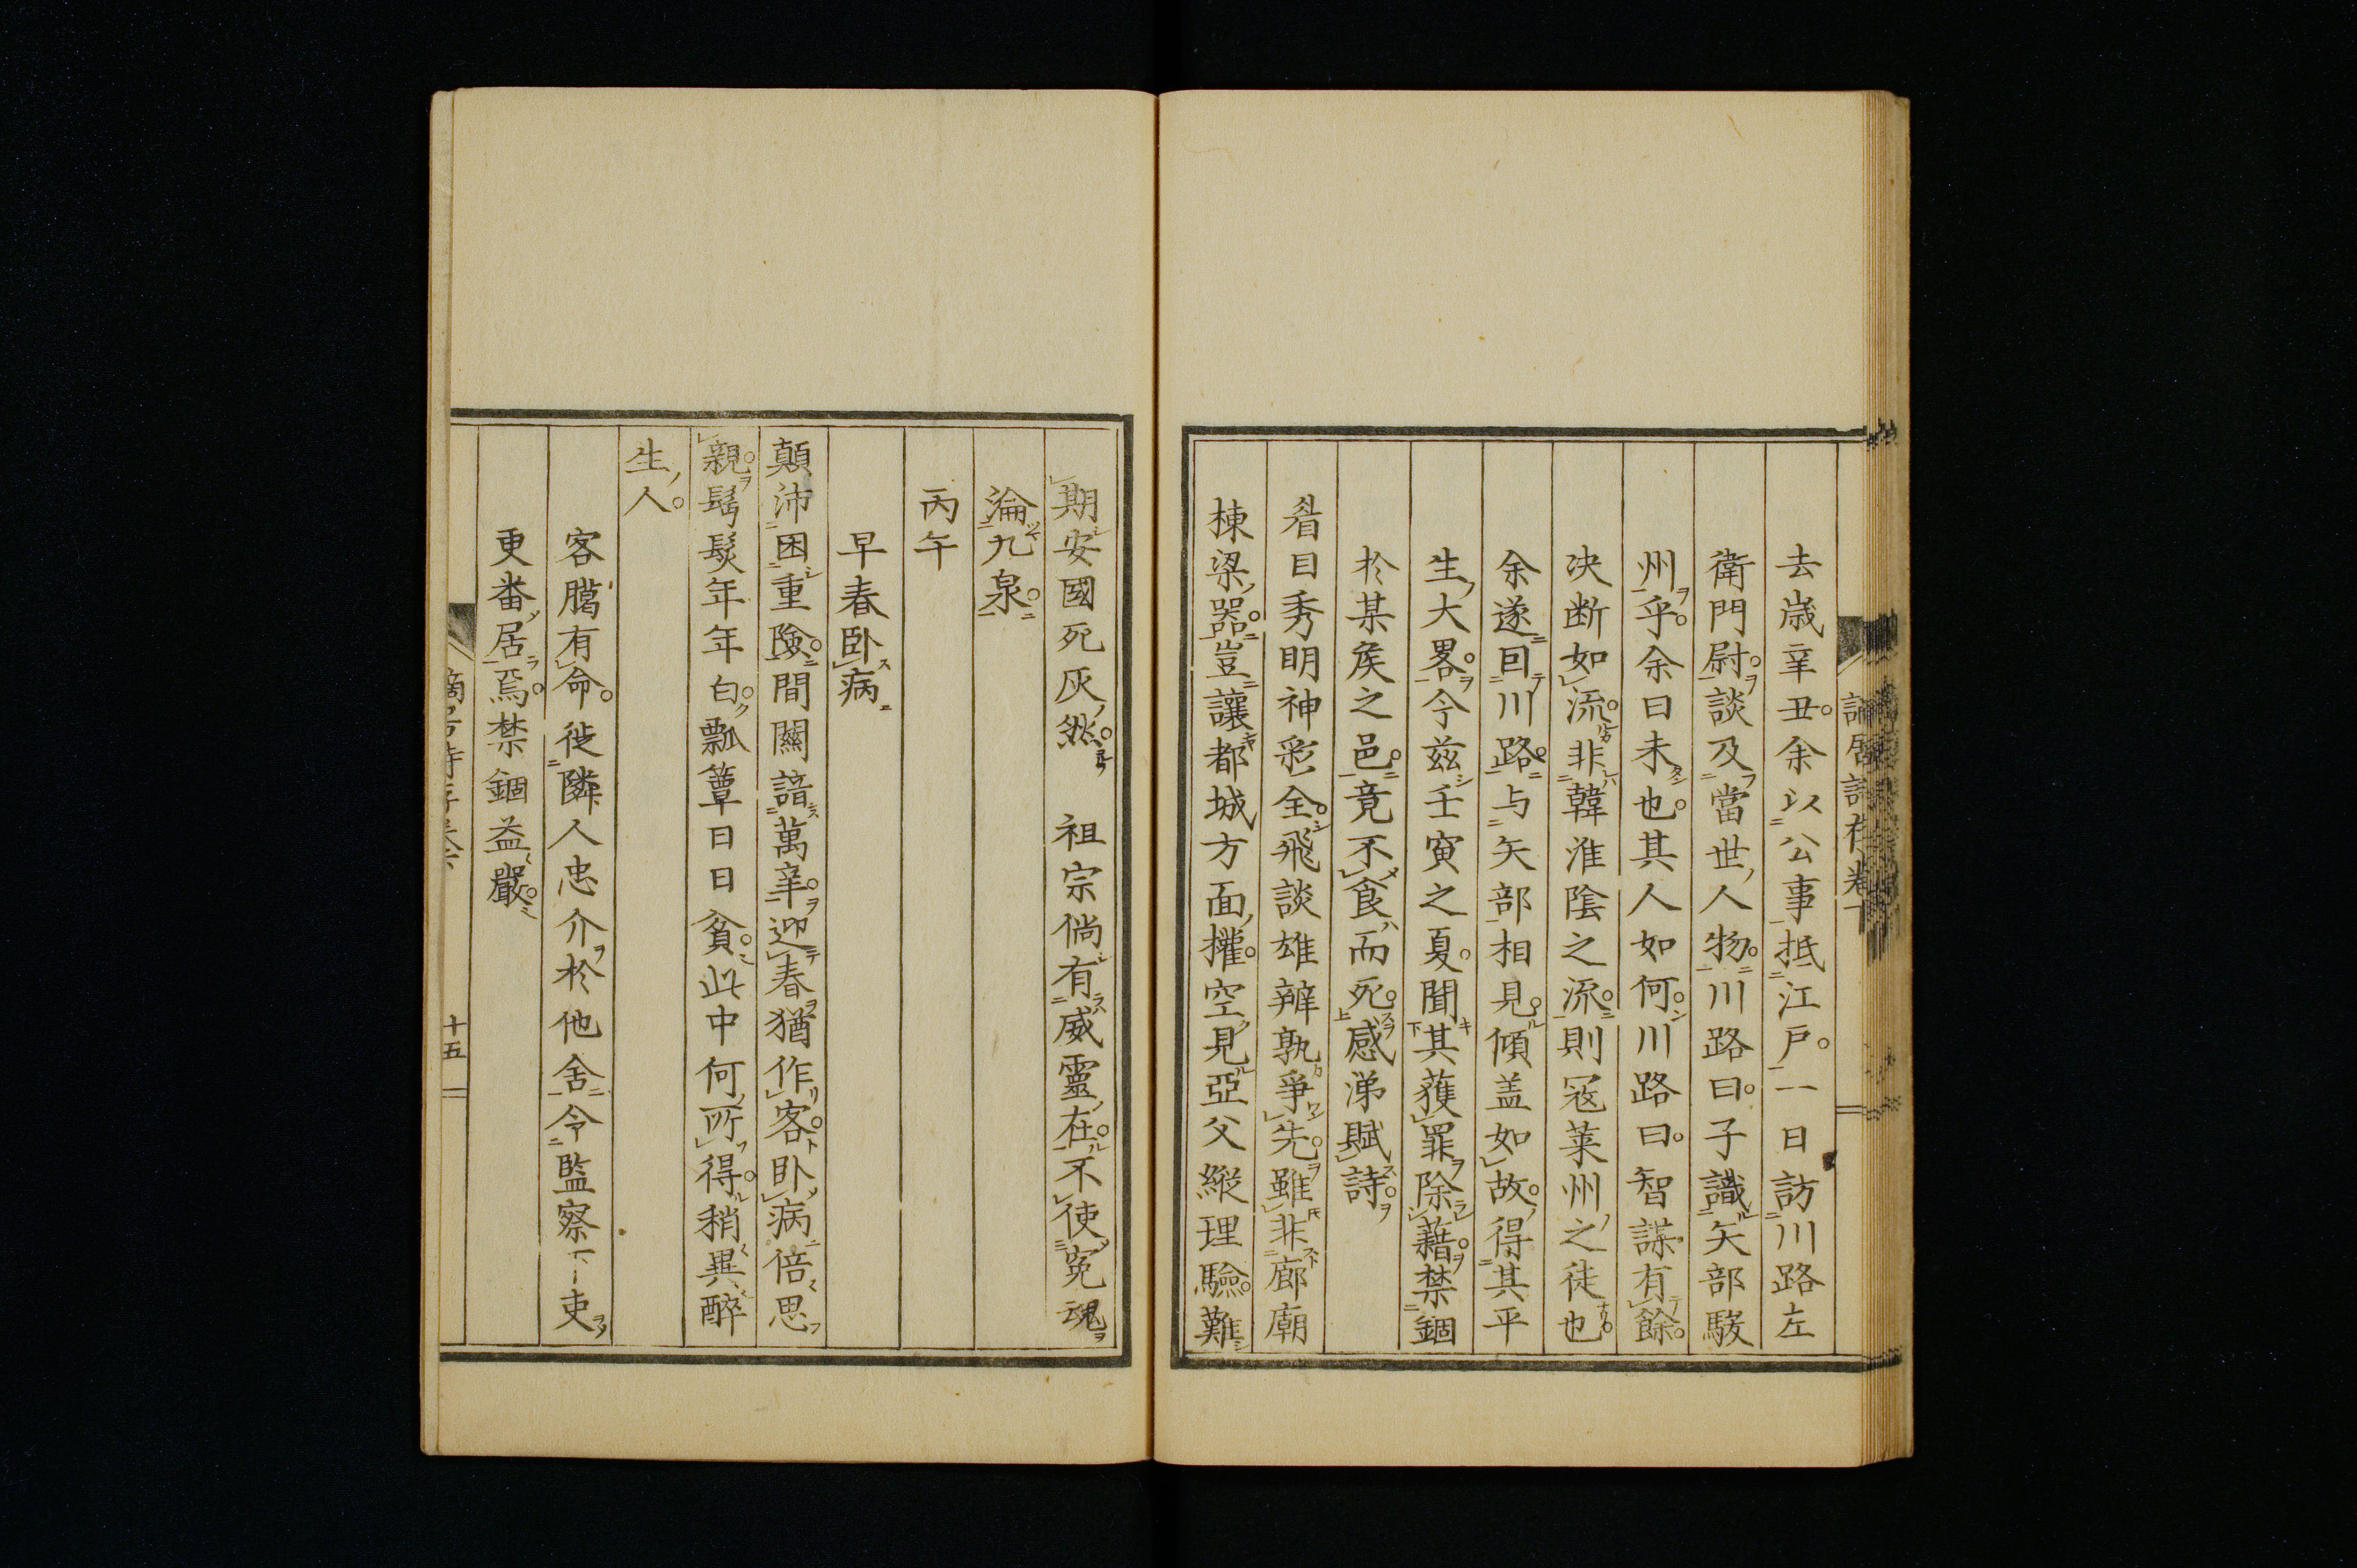 去歳辛丑余以公事抵江戸一日訪川路左
衛門尉談及當世人物川路曰子識矢部駿
州乎余曰未也其人如何川路曰智謀有餘
决断如流非韓淮陰之流則冦莱州之徒也
余遂回川路与矢部相見傾盖如故得其平
生大畧今兹壬寅之夏聞其獲罪除藉禁錮
於某矦之邑竟不食而死感涕賦詩
眉目秀明神彩全飛談雄辨孰爭先雖非廊廟
棟梁器豈讓都城方面權空見亞父縱理驗難
期安國死灰然　祖宗倘有威靈在不使寃魂
淪九泉
丙午
早春卧病
顛沛困重險間關諳萬辛迎春猶作客卧病倍思
親髩髮年年白瓢簞日日貧此中何所得稍異醉
生人
客臈有命徙隣人忠介於他舍令監察下吏
更番居焉禁錮益嚴
十五